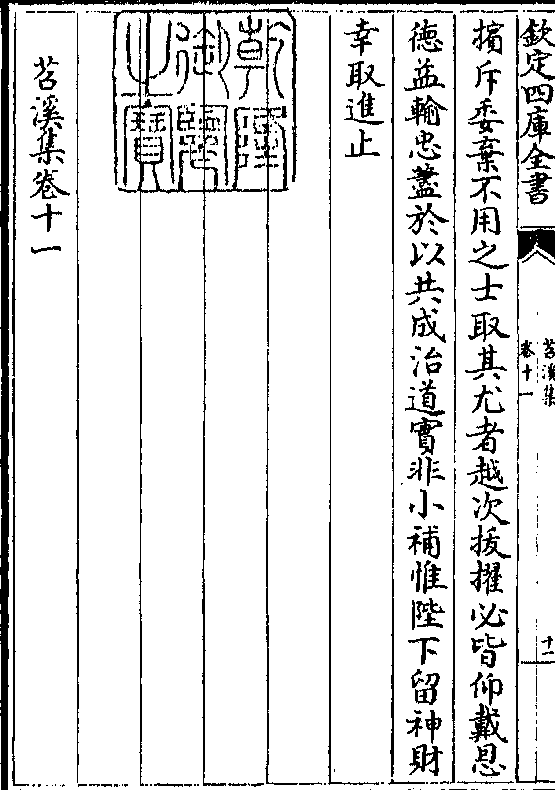 欽定四庫全書
苕溪集
卷十一
十一
擯斥委棄不用之士取其尤者越次拔擢必皆仰戴恩
德益輸忠藎於以共成治道實非小補惟陛下留神財
幸取進止
乾隆御覽之寶
苕溪集卷十一